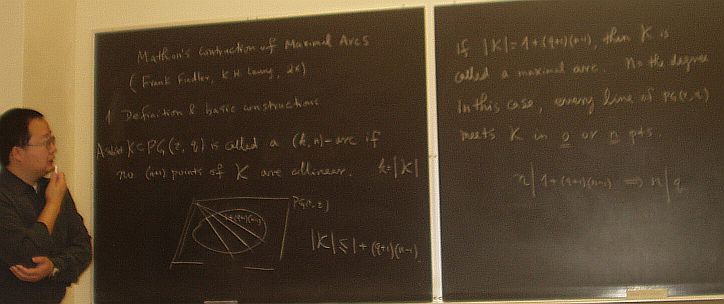 Mathon's Contruction of Maximal Arcs
(Frank Fiedler, K H Leung, 2x)
1. Definition & basic constructions
A subset K⊂PG(2, q) is called a (k, n)-arc if
no (n+1) points of K are collinear. k=|K|
PG(2, q)
1+(q+1)(n-1)
|K| ≤ 1+(q+1)(n-1)
if |K| = 1+(q+1)(n-1), then K is
called a maximal arc. n = the degree
In this case, every line of PG(2, q)
meets K in 0 or n pts.
n | 1+(q+1)(n-1) ⟹ n | q